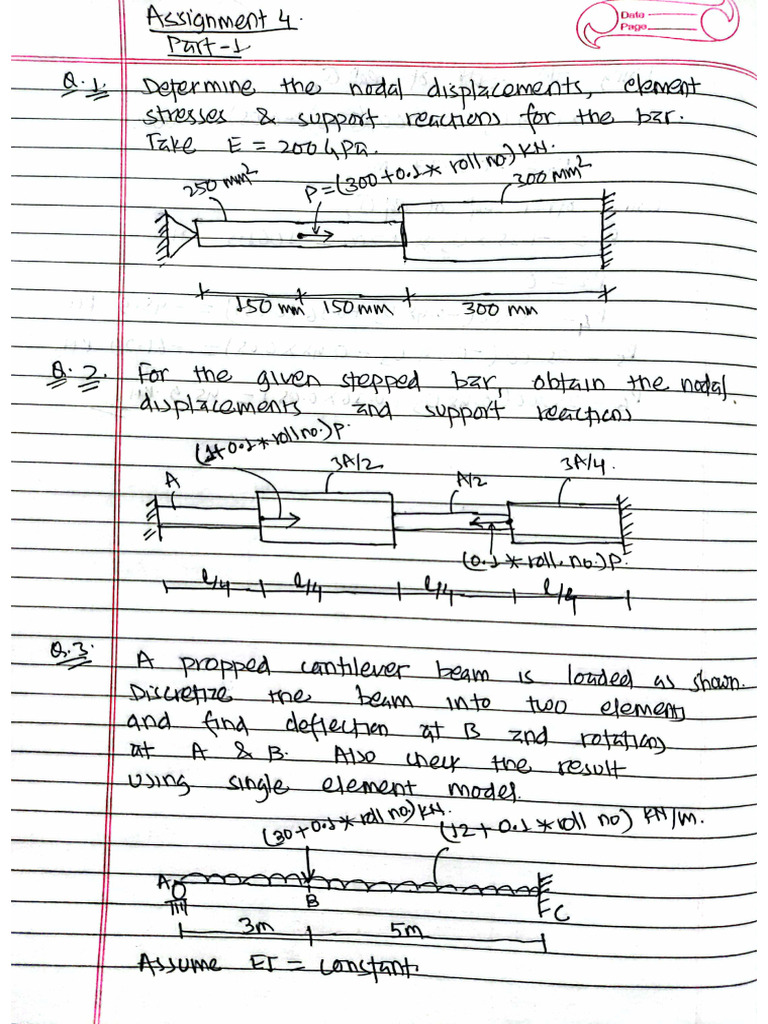 Assignment 4.
Part-1
Date
Page
Q.1. Determine the nodal displacements, element
stresses & support reactions for the bar.
Take E = 200 GPa.
250 mm²
P=(300+0.1* roll no.) KN.
300 mm²
150 mm 150 mm 300 mm
Q.2. For the given stepped bar, obtain the nodal
displacements and support reactions
(1+0.1* roll no.)P.
A
3A/2
A/2
3A/4.
(0.1* roll. no.)P.
l/4 l/4 l/4 l/4
Q.3. A propped cantilever beam is loaded as shown.
Discretize the beam into two elements
and find deflection at B and rotations
at A & B. Also check the result
using single element model.
(30+0.1* roll no) KN.
(12+0.1* roll no) KN/m.
A
B
C
3m 5m
Assume EI = constant.